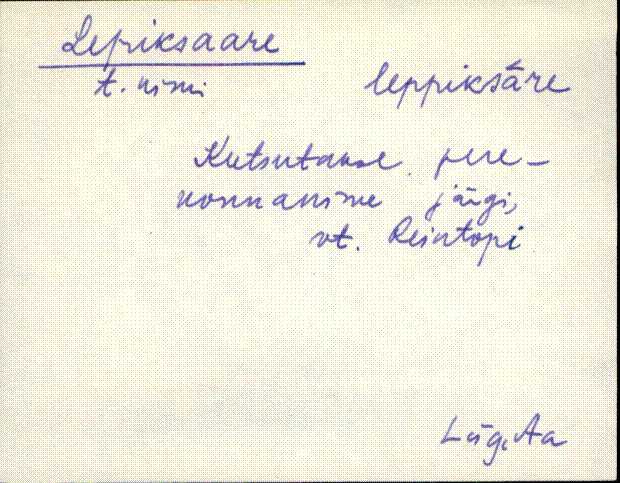 Lepiksaare
t. nimi leppiksāre
Kutsutakse pere-
konnanime järgi,
vt. Reintopi
Lüg, Aa